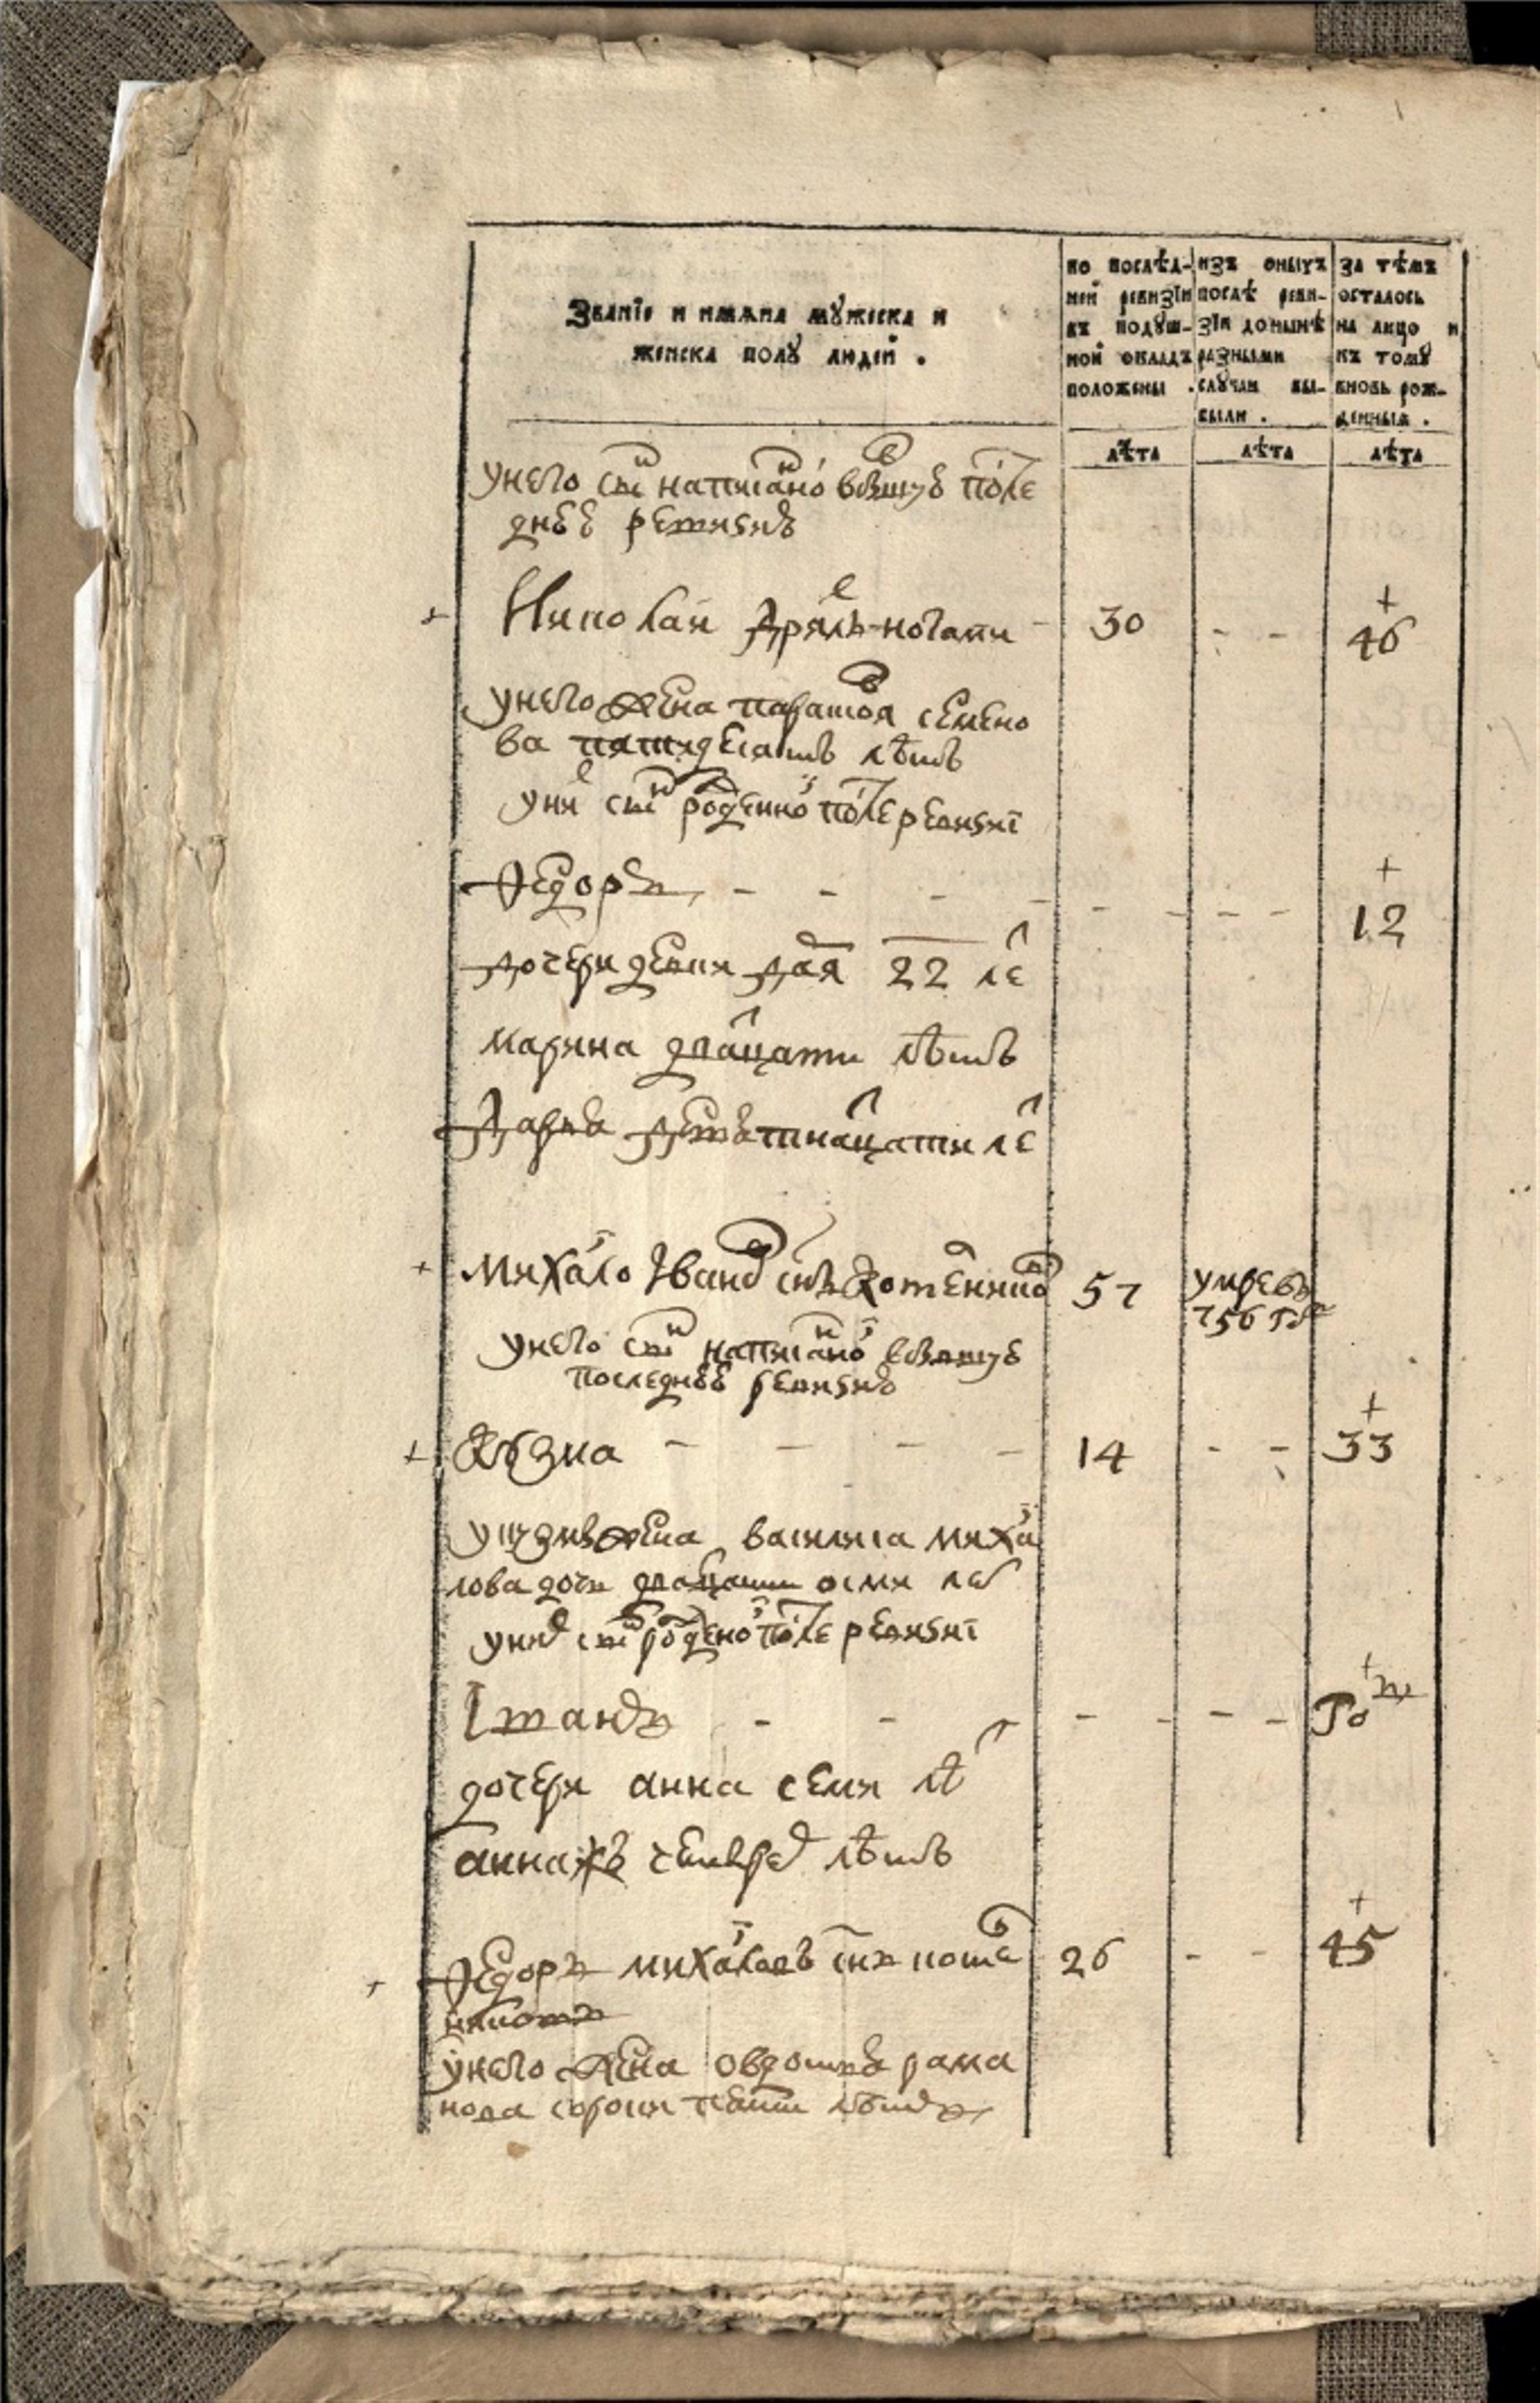 Званїе и имѧна мꙋжеска и
женска полꙋ людей .
по послѣд-
ней ревизїи
въ подꙋш-
ной окладъ
положены .
изъ оныхъ
послѣ реви-
зїи до нынѣ
разными
слꙋчаи вы-
были .
за тѣмъ
осталось
на лицо и
къ томꙋ
вновь рож-
денныя .
лѣта лѣта лѣта
унего сн҃ъ написано
днеѣ ревизиѣ
Николай 30 - - 46
унего жена парасков'я семено
ва пятидесятъ лѣтъ
унея сн҃ъ рожденной после ревизиі
Ѳедоръ - - - - - - - - 12
дочери девки 22 ле
марина дватцати лѣтъ
Дарья девятнатцати ле
Михайло Іванов сн҃ъ 57 умре въ
756 году
унего сн҃ъ написанной
последнеѣ ревизиѣ
Кузма - - - - 14 - - 33
у кузмы жена василиса михай
лова дочь дватцати осми лет
унех сн҃ъ рожденной после ревизиі
Іванъ - - - - - -
дочери анна семи лѣ
анна жъ четырех лѣтъ
Ѳедоръ михайловъ сн҃ъ 26 - - 45
унего жена овдотья рама
нова сорока пяти лѣтъ